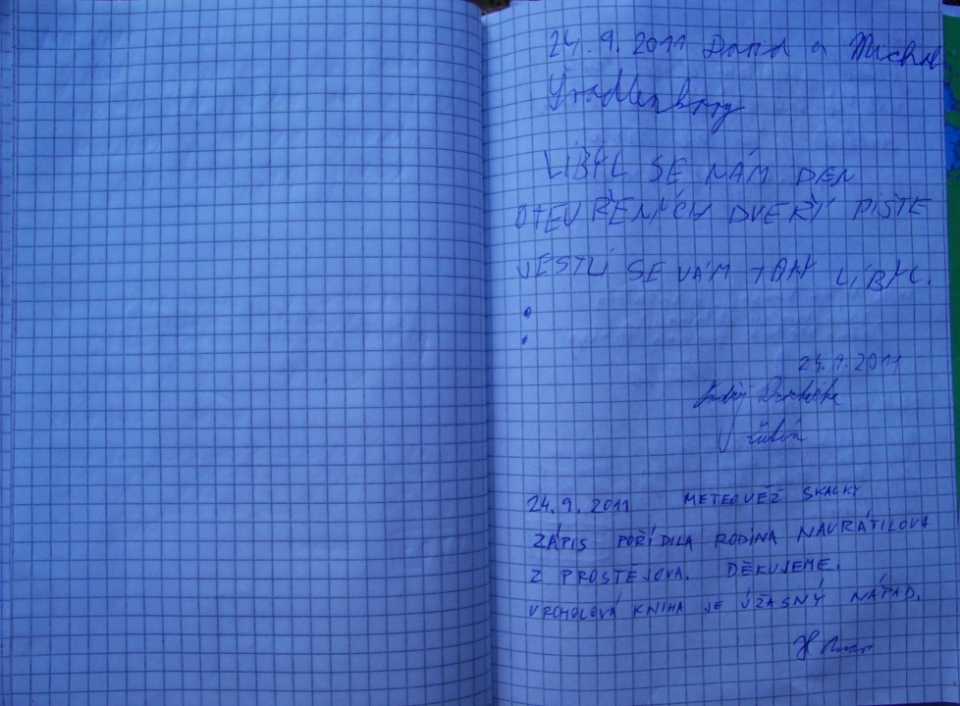 24.9.2011 Dana a Michal
LÍBYL SE NÁM DEN
OTEVŘENÝCH DVEŘÍ PIŠTE
JESTLI SE VÁM TAKY LÍBYL.
:
24.9.2011
24.9.2011 METEOVĚŽ SKALKY
ZÁPIS POŘÍDILA RODINA NAVRÁTILOVA
Z PROSTĚJOVA. DĚKUJEME.
VRCHOLOVÁ KNIHA JE ÚŽASNÝ NÁPAD.